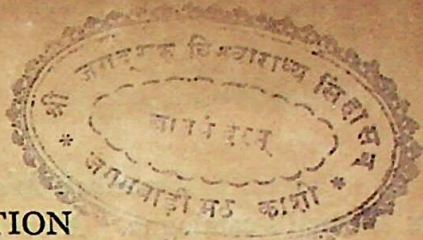 श्री जगद्गुरु विश्वाराध्य सिंहासन
ज्ञान मंदिर
* जंगमवाड़ी मठ काशी *
TION